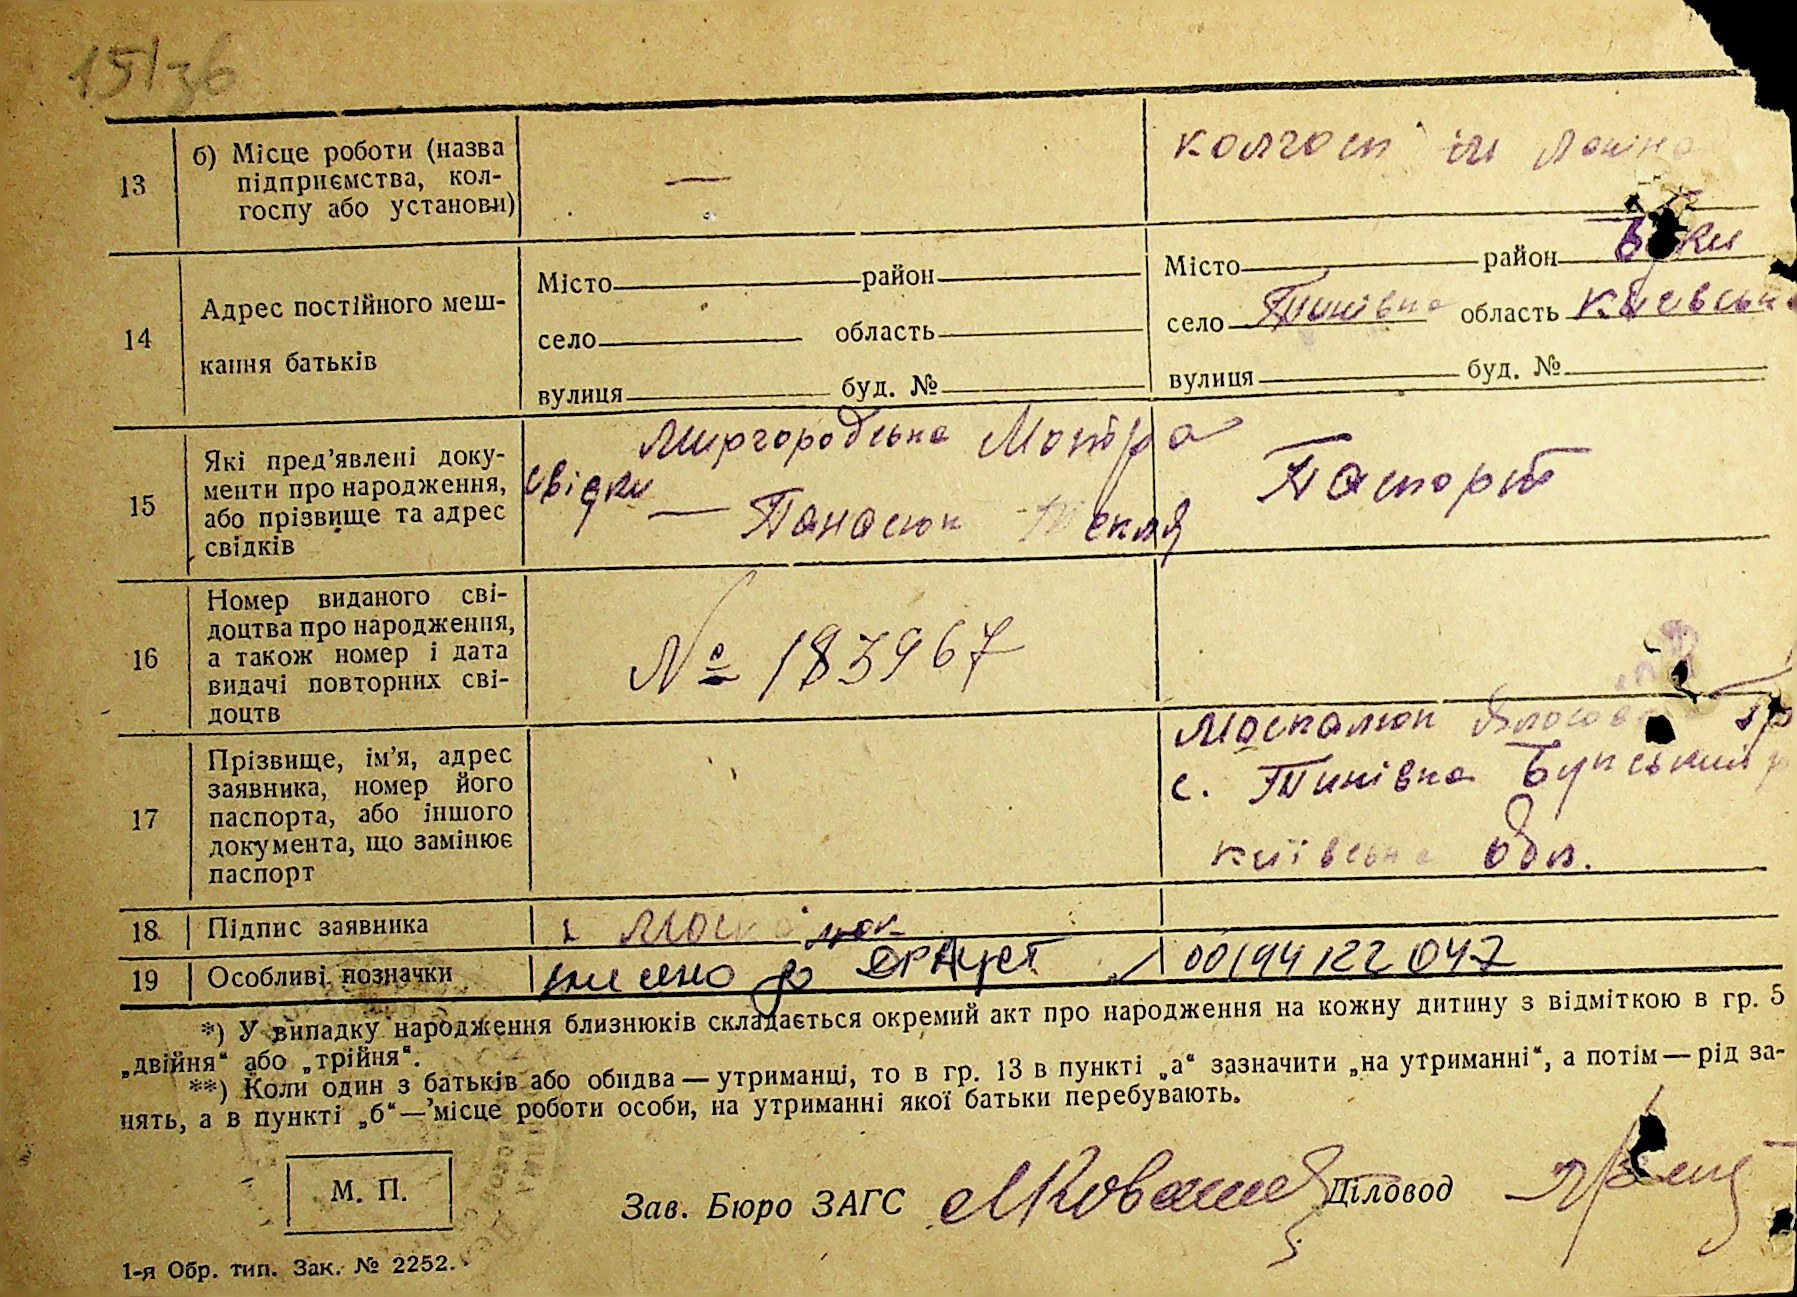 15/36
13
б) Місце роботи (назва
підприємства, кол-
госпу або установи)
—
колгосп ім Леніна
14
Адрес постійного меш-
кання батьків
Місто район
село область
вулиця буд. №
Місто район Буки
село Тинівка область Київська
вулиця буд. №
15
Які пред’явлені доку-
менти про народження,
або прізвище та адрес
свідків
Миргородська Мотря
свідки — Панасюк Текля
Паспорт
16
Номер виданого сві-
доцтва про народження,
а також номер і дата
видачі повторних сві-
доцтв
№ 183967
17
Прізвище, ім’я, адрес
заявника, номер його
паспорта, або іншого
документа, що замінює
паспорт
Москалюк
с. Тинівка Букський р
київська обл.
18 Підпис заявника
Москалюк
19 Особливі позначки
внесено до ДРАЦСГ 00194122047
*) У випадку народження близнюків складається окремий акт про народження на кожну дитину з відміткою в гр. 5
„двійня“ або „трійня“.
**) Коли один з батьків або обидва — утриманці, то в гр. 13 в пункті „а“ зазначити „на утриманні“, а потім — рід за-
нять, а в пункті „б“ — місце роботи особи, на утриманні якої батьки перебувають.
М. П.
Зав. Бюро ЗАГС
Діловод
1-я Обр. тип. Зак. № 2252.